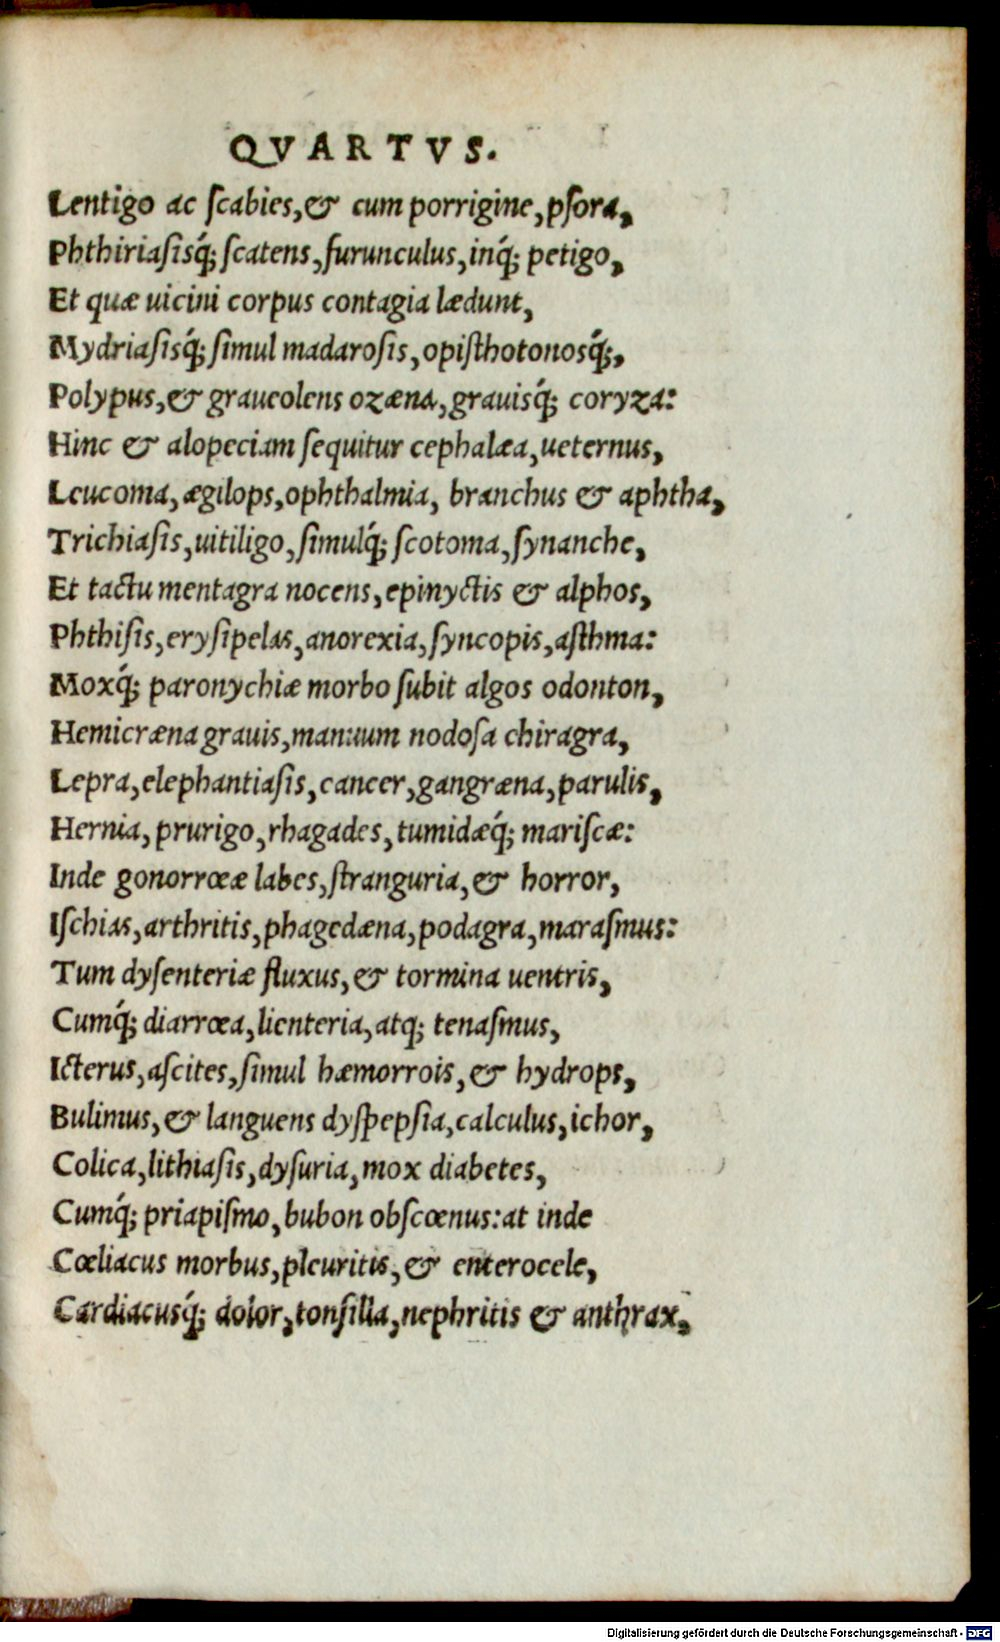 QVARTVS.
Lentigo ac ſcabies, & cum porrigine, pſora,
Phthiriaſisq́; ſcatens, furunculus, inq́; petigo,
Et quæ uicini corpus contagia lædunt,
Mydriaſisq́; ſimul madaroſis, opiſthotonosq́;,
Polypus, & graueolens ozæna, grauisq́; coryza:
Hinc & alopeciam ſequitur cephalæa, ueternus,
Leucoma, ægilops, ophthalmia, branchus & aphtha,
Trichiaſis, uitiligo, ſimulq́; ſcotoma, ſynanche,
Et tactu mentagra nocens, epinyctis & alphos,
Phthiſis, eryſipelas, anorexia, ſyncopis, aſthma:
Moxq́; paronychiæ morbo ſubit algos odonton,
Hemicræna grauis, manuum nodoſa chiragra,
Lepra, elephantiaſis, cancer, gangræna, parulis,
Hernia, prurigo, rhagades, tumidæq́; mariſcæ:
Inde gonorrœæ labes, ſtranguria, & horror,
Iſchias, arthritis, phagedæna, podagra, maraſmus:
Tum dyſenteriæ fluxus, & tormina uentris,
Cumq́; diarrœa, lienteria, atq; tenaſmus,
Icterus, aſcites, ſimul hæmorrois, & hydrops,
Bulimus, & languens dyſpepſia, calculus, ichor,
Colica, lithiaſis, dyſuria, mox diabetes,
Cumq́; priapiſmo, bubon obſcœnus: at inde
Cœliacus morbus, pleuritis, & enterocele,
Cardiacusq́; dolor, tonſilla, nephritis & anthrax,
Digitalisierung gefördert durch die Deutsche Forschungsgemeinschaft - DFG